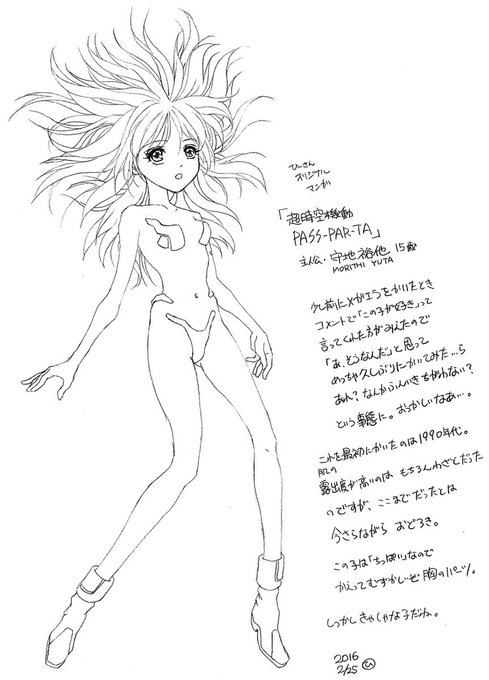 ひーさん
オリジナル
マンガ
「超時空機動
PASS-PAR-TA」
主人公・守地裕他 15歳
MORITHI YUTA
少し前にメカエラをかいたとき
コメントで「この子が好き」って
言ってくれた方がみえたので
「あ、そうなんだ」と思って
めっちゃ久しぶりにかいてみた…ら
あれ?なんかふんいきちがわない?
という事態に。おっかしいなあ…。
これを最初にかいたのは1990年代。
肌の
露出度が高いのは もちろんわざとだった
のですが、ここまでだったとは
今さらながら おどろき。
この子は「ちっぱい」なので
かえってむずかしいぞ 胸のパーツ。
しっかしきゃしゃな子だね。
2016
2/25 ひ